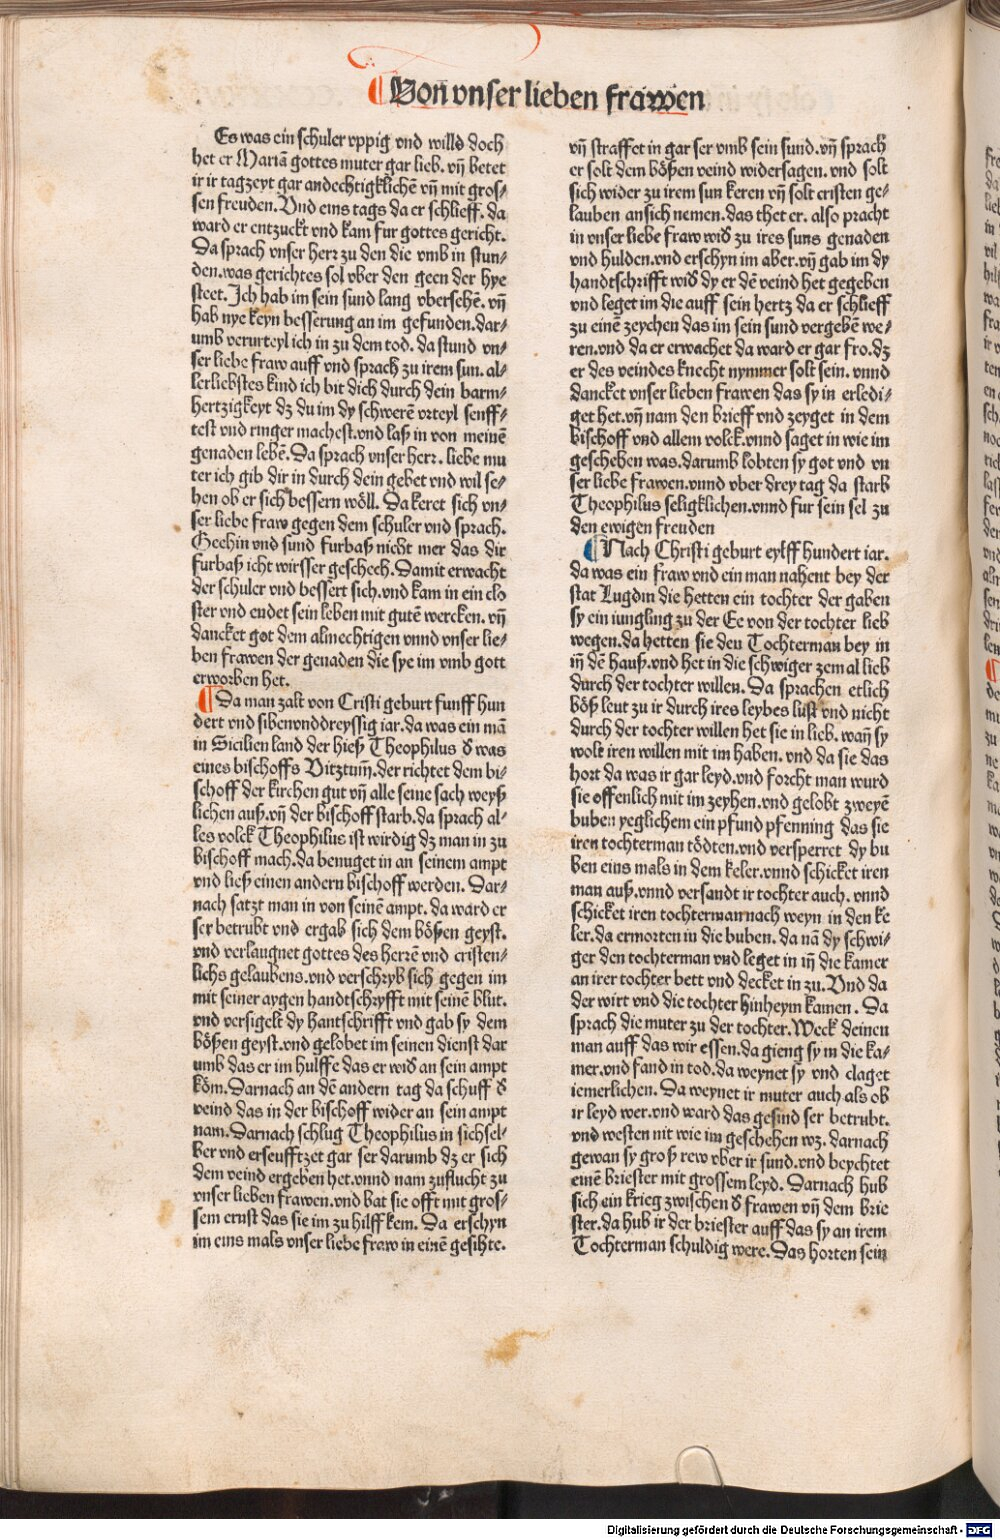 Von vnser lieben frawen
Es was ein schuler vppig vnd willd doch
het er Mariā gottes muter gar lieb. vn̄ betet
ir ir tagzeyt gar andechtigklichē vn̄ mit gros⸗
sen freuden. Vnd eins tags da er schlieff. da
ward er entzuckt vnd kam fur gottes gericht.
Da sprach vnser herr zu den die vmb in stun⸗
den. was gerichtes sol vber den geen der hye
steet. Ich hab im sein sund lang vbersehē. vn̄
hab nye keyn besserung an im gefunden. dar⸗
umb verurteyl ich in zu dem tod. da stund vn⸗
ser liebe fraw auff vnd sprach zu irem sun. al⸗
lerliebstes kind ich bit dich durch dein barm⸗
hertzigkeyt dz du im dy schwerē vrteyl senff⸗
test vnd ringer machest. vnd laß in von meinē
genaden lebē. Da sprach vnser herr. liebe mu
ter ich gib dir in durch dein gebet vnd wil se⸗
hen ob er sich bessern wöll. Da keret sich vn⸗
ser liebe fraw gegen dem schuler vnd sprach.
Gee hin vnd sund furbaß nicht mer das dir
furbaß icht wirsser geschech. Damit erwacht
der schuler vnd bessert sich. vnd kam in ein clo
ster vnd endet sein leben mit gutē wercken. vn̄
dancket got dem almechtigen vnnd vnser lie⸗
ben frawen der genaden die sye im vmb gott
erworben het.
Da man zalt von Cristi geburt funff hun
dert vnd sibenvnddreyssig iar. da was ein mā
in Sicilien land der hieß Theophilus đ was
eines bischoffs Vitztum̄. der richtet dem bi⸗
schoff der kirchen gut vn̄ alle seine sach weyß
lichen auß. vn̄ der bischoff starb. da sprach al⸗
les volck Theophilus ist wirdig dz man in zu
bischoff mach. da benuget in an seinem ampt
vnd ließ einen andern bischoff werden. Dar⸗
nach satzt man in von seinē ampt. da ward er
ser betrubt vnd ergab sich dem bößen geyst.
vnd verlaugnet gottes des herrē vnd cristen⸗
lichs gelaubens. vnd verschryb sich gegen im
mit seiner aygen handtschryfft mit seinē blut.
vnd versigelt dy hantschrifft vnd gab sy dem
bößen geyst. vnd gelobet im seinen dienst dar
umb das er im hulffe das er wiđ an sein ampt
köm. Darnach an dē andern tag da schuff đ
veind das in der bischoff wider an sein ampt
nam. Darnach schlug Theophilus in sich sel⸗
ber vnd erseufftzet gar ser darumb dz er sich
dem veind ergeben het. vnnd nam zuflucht zu
vnser lieben frawen. vnd bat sie offt mit gros⸗
sem ernst das sie im zu hilff kem. Da erschyn
im eins mals vnser liebe fraw in einē gesihte.
vn̄ straffet in gar ser vmb sein sund. vn̄ sprach
er solt dem bößen veind widersagen. vnd solt
sich wider zu irem sun keren vn̄ solt cristen ge⸗
lauben an sich nemen. das thet er. also pracht
in vnser liebe fraw wiđ zu ires suns genaden
vnd hulden. vnd erschyn im aber. vn̄ gab im dy
handtschrifft wiđ dy er dē veind het gegeben
vnd leget im die auff sein hertz da er schlieff
zu einē zeychen das im sein sund vergebē we⸗
ren. vnd da er erwachet da ward er gar fro. dz
er des veindes knecht nymmer solt sein. vnnd
dancket vnser lieben frawen das sy in erledi⸗
get het. vn̄ nam den brieff vnd zeyget in dem
bischoff vnd allem volck. vnnd saget in wie im
geschehen was. darumb lobten sy got vnd vn
ser liebe frawen. vnnd vber drey tag da starb
Theophilus seligklichen. vnnd fur sein sel zu
den ewigen freuden
Nach Christi geburt eylff hundert iar.
da was ein fraw vnd ein man nahent bey der
stat Lugdin die hetten ein tochter der gaben
sy ein iungling zu der Ee von der tochter lieb
wegen. da hetten sie den Tochterman bey in
in̄ dē hauß. vnd het in die schwiger zemal lieb
durch der tochter willen. Da sprachen etlich
böß leut zu ir durch ires leybes lust vnd nicht
durch der tochter willen het sie in lieb. wan̄ sy
wolt iren willen mit im haben. vnd da sie das
hort da was ir gar leyd. vnd forcht man wurd
sie offenlich mit im zeyhen. vnd gelobt zweyē
buben yeglichem ein pfund pfenning das sie
iren tochterman tödten. vnd versperret dy bu
ben eins mals in dem keler. vnnd schicket iren
man auß. vnnd versandt ir tochter auch. vnnd
schicket iren tochterman nach weyn in den ke
ler. da ermorten in die buben. da nā dy schwi⸗
ger den tochterman vnd leget in in̄ die kamer
an irer tochter bett vnd decket in zu. Vnd da
der wirt vnd die tochter hinheym kamen. Da
sprach die muter zu der tochter. Weck deinen
man auff das wir essen. da gieng sy in die ka⸗
mer. vnd fand in tod. da weynet sy vnd claget
iemerlichen. Da weynet ir muter auch als ob
ir leyd wer. vnd ward das gesind ser betrubt.
vnd westen nit wie im geschehen wz. darnach
gewan sy groß rew vber ir sund. vnd beychtet
einē briester mit grossem leyd. Darnach hub
sich ein krieg zwischen đ frawen vn̄ dem brie
ster. da hub ir der briester auff das sy an irem
Tochterman schuldig were. Das horten sein
Digitalisierung gefördert durch die Deutsche Forschungsgemeinschaft - DFG